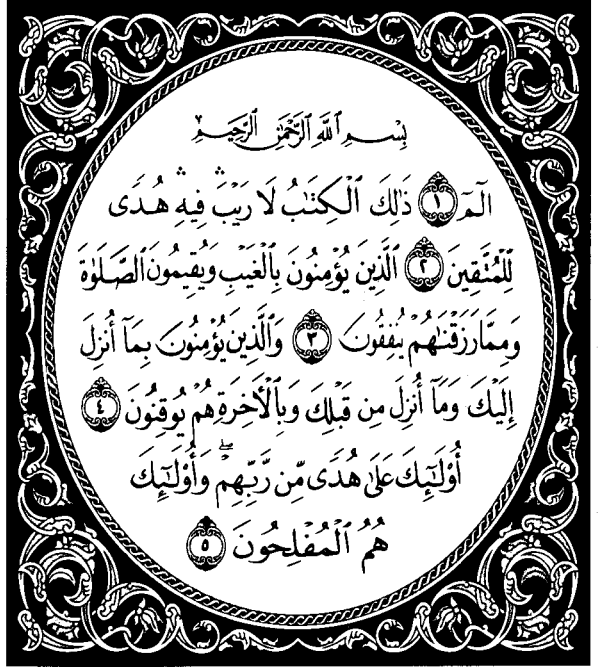 بِسْمِ ٱللَّهِ ٱلرَّحْمَٰنِ ٱلرَّحِيمِ
الٓمٓ ١ ذَٰلِكَ ٱلْكِتَٰبُ لَا رَيْبَ ۛ فِيهِ ۛ هُدًى
لِّلْمُتَّقِينَ ٢ ٱلَّذِينَ يُؤْمِنُونَ بِٱلْغَيْبِ وَيُقِيمُونَ ٱلصَّلَوٰةَ
وَمِمَّا رَزَقْنَٰهُمْ يُنفِقُونَ ٣ وَٱلَّذِينَ يُؤْمِنُونَ بِمَآ أُنزِلَ
إِلَيْكَ وَمَآ أُنزِلَ مِن قَبْلِكَ وَبِٱلْأَخِرَةِ هُمْ يُوقِنُونَ ٤
أُوْلَٰٓئِكَ عَلَىٰ هُدًى مِّن رَّبِّهِمْ ۖ وَأُوْلَٰٓئِكَ
هُمُ ٱلْمُفْلِحُونَ ٥